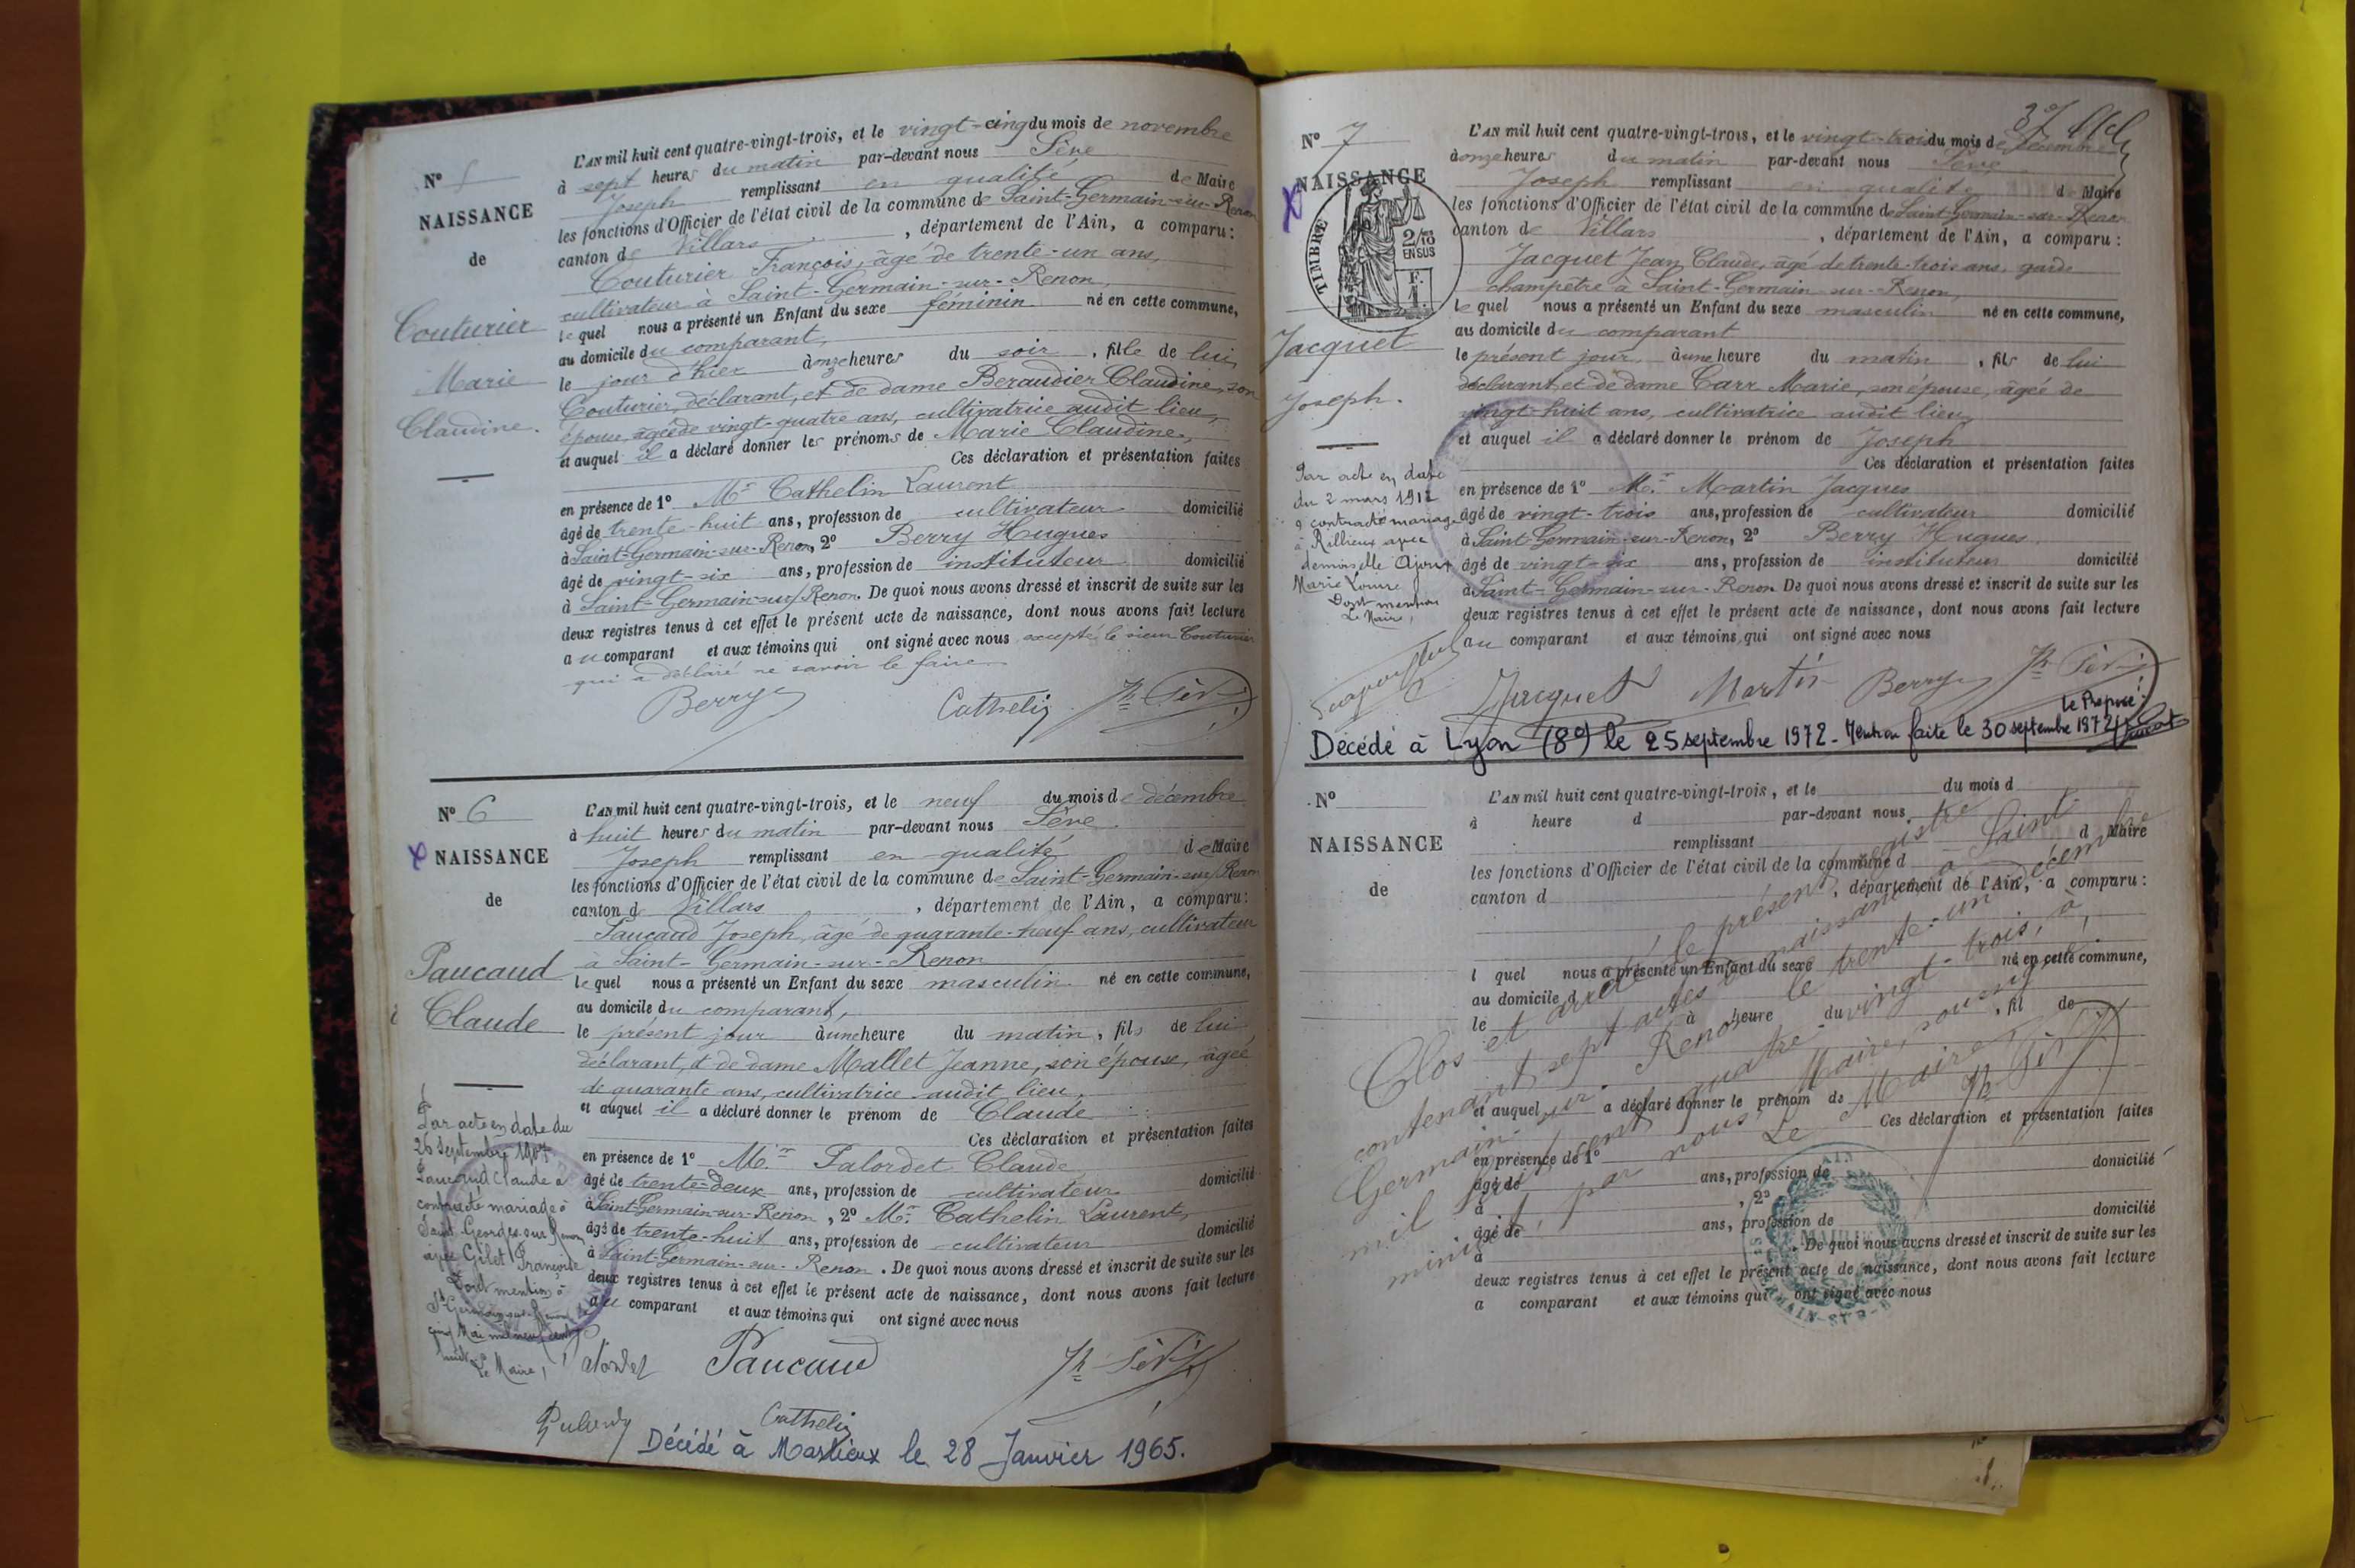 L'AN mil huit cent quatre-vingt-trois, et le vingt-cinq du mois de novembre
à sept heures du matin par-devant nous Sève
Joseph remplissant en qualité de Maire
les fonctions d'Officier de l'état civil de la commune de Saint-Germain-sur-Renon
canton de Villars, département de l'Ain, a comparu:
Couturier François, âgé de trente-un ans,
cultivateur à Saint-Germain-sur-Renon,
lequel nous a présenté un Enfant du sexe féminin né en cette commune,
au domicile du comparant,
le jour d'hier à onze heures du soir, fille de lui
Couturier, déclarant, et de dame Beraudier Claudine, son
épouse, agée de vingt-quatre ans, cultivatrice audit lieu,
et auquel il a déclaré donner les prénoms de Marie Claudine,
Ces déclaration et présentation faites
en présence de 1° Mr Cathelin Laurent
âgé de trente-huit ans, profession de cultivateur domicilié
à Saint-Germain-sur-Renon, 2° Berry Hugues
âgé de vingt-six ans, profession de instituteur domicilié
à Saint-Germain-sur-Renon. De quoi nous avons dressé et inscrit de suite sur les
deux registres tenus à cet effet le présent acte de naissance, dont nous avons fait lecture
au comparant et aux témoins qui ont signé avec nous excepté le sieur Couturier
qui a déclaré ne savoir le faire
Berry Cathelin Jh Sève
N°
NAISSANCE
de
Couturier
Marie
Claudine.
N° 6
NAISSANCE
de
Paucaud
Claude
L'AN mil huit cent quatre-vingt-trois, et le neuf du mois de décembre
à huit heures du matin par-devant nous Sève
Joseph remplissant en qualité de Maire
les fonctions d'Officier de l'état civil de la commune de Saint-Germain-sur-Renon
canton de Villars, département de l'Ain, a comparu:
Paucaud Joseph, âgé de quarante-neuf ans, cultivateur
à Saint-Germain-sur-Renon
lequel nous a présenté un Enfant du sexe masculin né en cette commune,
au domicile du comparant,
le présent jour à une heure du matin, fils de lui
déclarant, et de dame Mallet Jeanne, son épouse, âgée
de quarante ans, cultivatrice audit lieu,
et auquel il a déclaré donner le prénom de Claude
Ces déclaration et présentation faites
en présence de 1° Mr Palordet Claude
âgé de trente-deux ans, profession de cultivateur domicilié
à Saint-Germain-sur-Renon, 2° Mr Cathelin Laurent,
âgé de trente-huit ans, profession de cultivateur domicilié
à Saint-Germain-sur-Renon. De quoi nous avons dressé et inscrit de suite sur les
deux registres tenus à cet effet le présent acte de naissance, dont nous avons fait lecture
au comparant et aux témoins qui ont signé avec nous
Par acte en date du
26 septembre 1907
Paucaud Claude a
contracté mariage à
Saint Georges sur Renon
avec Gilet Françoise
Dont mention à
St Germain-sur-Renon le
cinq Mai mil neuf cent
huit
Le Maire,
Palordet Paucaud Jh Sève
Cathelin
Décédé à Marlieux le 28 Janvier 1965.
N° 7
NAISSANCE
TIMBRE
2/10
EN SUS
F.
1.
Jacquet
Joseph.
L'AN mil huit cent quatre-vingt-trois, et le vingt-trois du mois de décembre
à onze heures du matin par-devant nous Sève
Joseph remplissant en qualité de Maire
les fonctions d'Officier de l'état civil de la commune de Saint-Germain-sur-Renon
canton de Villars, département de l'Ain, a comparu:
Jacquet Jean Claude, âgé de trente-trois ans, garde
champêtre à Saint-Germain-sur-Renon,
lequel nous a présenté un Enfant du sexe masculin né en cette commune,
au domicile du comparant
le présent jour à une heure du matin, fils de lui
déclarant et de dame Carr Marie, son épouse, âgée de
vingt-huit ans, cultivatrice audit lieu,
et auquel il a déclaré donner le prénom de Joseph
Ces déclaration et présentation faites
en présence de 1° Mr Martin Jacques
âgé de vingt-trois ans, profession de cultivateur domicilié
à Saint-Germain-sur-Renon, 2° Berry Hugues
âgé de vingt-six ans, profession de instituteur domicilié
à Saint-Germain-sur-Renon De quoi nous avons dressé et inscrit de suite sur les
deux registres tenus à cet effet le présent acte de naissance, dont nous avons fait lecture
au comparant et aux témoins qui ont signé avec nous
Par acte en date
du 2 mars 1912
a contracté mariage
à Rillieux avec
demoiselle
Marie Louise
Dont mention
Le Maire,
Jacquet Martin Berry Jh Sève
Le Préposé:
Décédé à Lyon (8e) le 25 septembre 1972 - Mention faite le 30 septembre 1972
N°
NAISSANCE
de
L'AN mil huit cent quatre-vingt-trois, et le du mois d
à heure d par-devant nous
remplissant d Maire
les fonctions d'Officier de l'état civil de la commune d
canton d , département de l'Ain, a comparu:
l quel nous a présenté un Enfant du sexe né en cette commune,
au domicile d
le à heure du , fil de
et auquel a déclaré donner le prénom de
Ces déclaration et présentation faites
en présence de 1°
âgé de ans, profession de domicilié
à , 2°
âgé de ans, profession de domicilié
à . De quoi nous avons dressé et inscrit de suite sur les
deux registres tenus à cet effet le présent acte de naissance, dont nous avons fait lecture
a comparant et aux témoins qui ont signé avec nous
Clos et arrêté le présent registre
contenant sept actes de naissance, à Saint
Germain-sur-Renon le trente-un décembre
mil huit cent quatre-vingt-trois, à
minuit, par nous, Maire, soussigné,
Le Maire
Jh Sève
MAIRIE